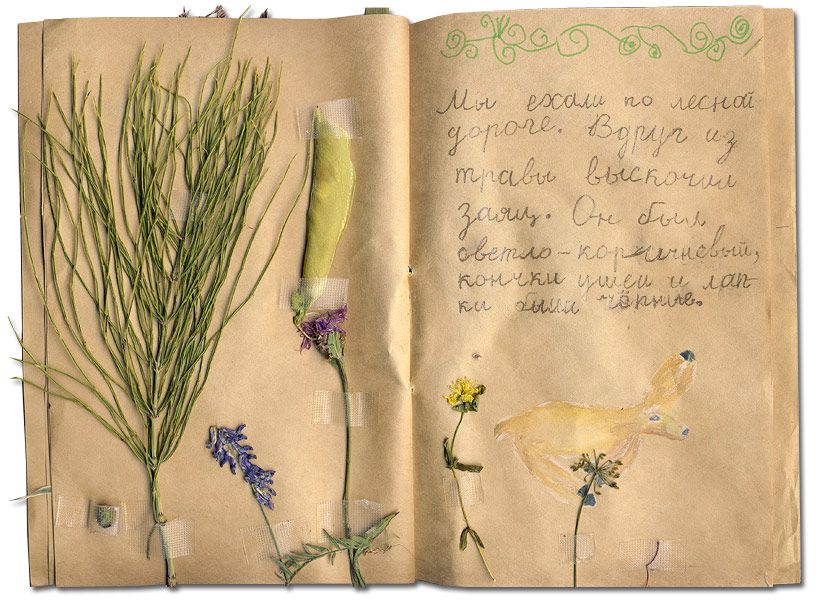 Мы ехали по лесной
дороге. Вдруг из
травы выскочил
заяц. Он был
светло-коричневый,
кончки ушей и лап-
ки были чёрные.